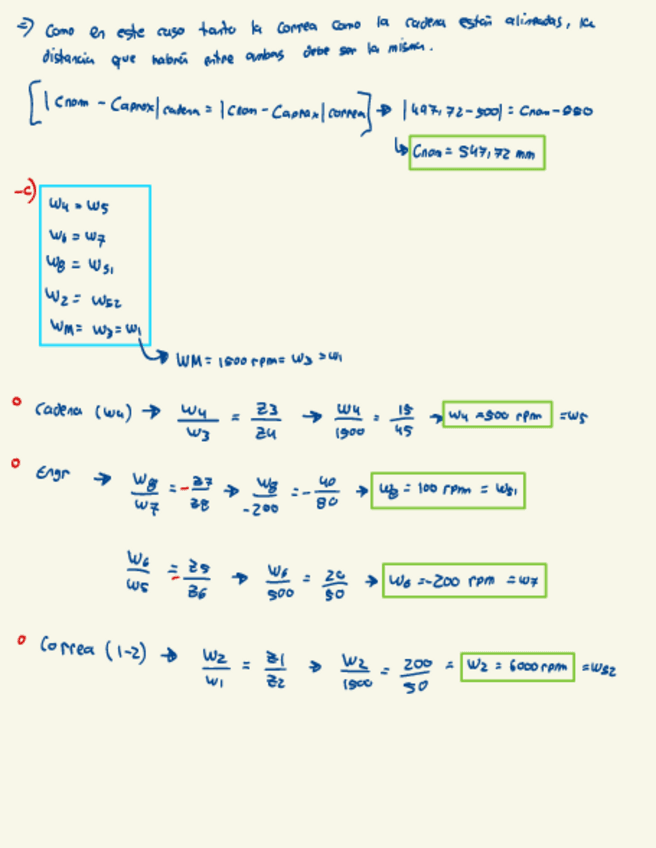 => Como en este caso tanto la correa como la cadena están alineadas, la
distancia que habrá entre ambas debe ser la misma.
[|Cnom - Caprox| cadena = |Cnom - Caprox| correa] → |497,72-500| = Cnom-
↳ Cnom = 547,72 mm
-c)
W4 = W5
W6 = W7
W8 = WS1
W2 = WS2
WM = W3 = W1
→ WM = 1500 rpm = W3 = W1
o Cadena (W4) → W4/W3 = Z3/Z4 → W4/1500 = 15/45 → W4 = 500 rpm = W5
o Engr → W8/W7 = -Z7/Z8 → W8/-200 = -40/80 → W8 = 100 rpm = WS1
W6/W5 = -Z5/Z6 → W6/500 = 20/50 → W6 = -200 rpm = W7
o Correa (1-2) → W2/W1 = Z1/Z2 → W2/1500 = 200/50 = W2 = 6000 rpm = WS2